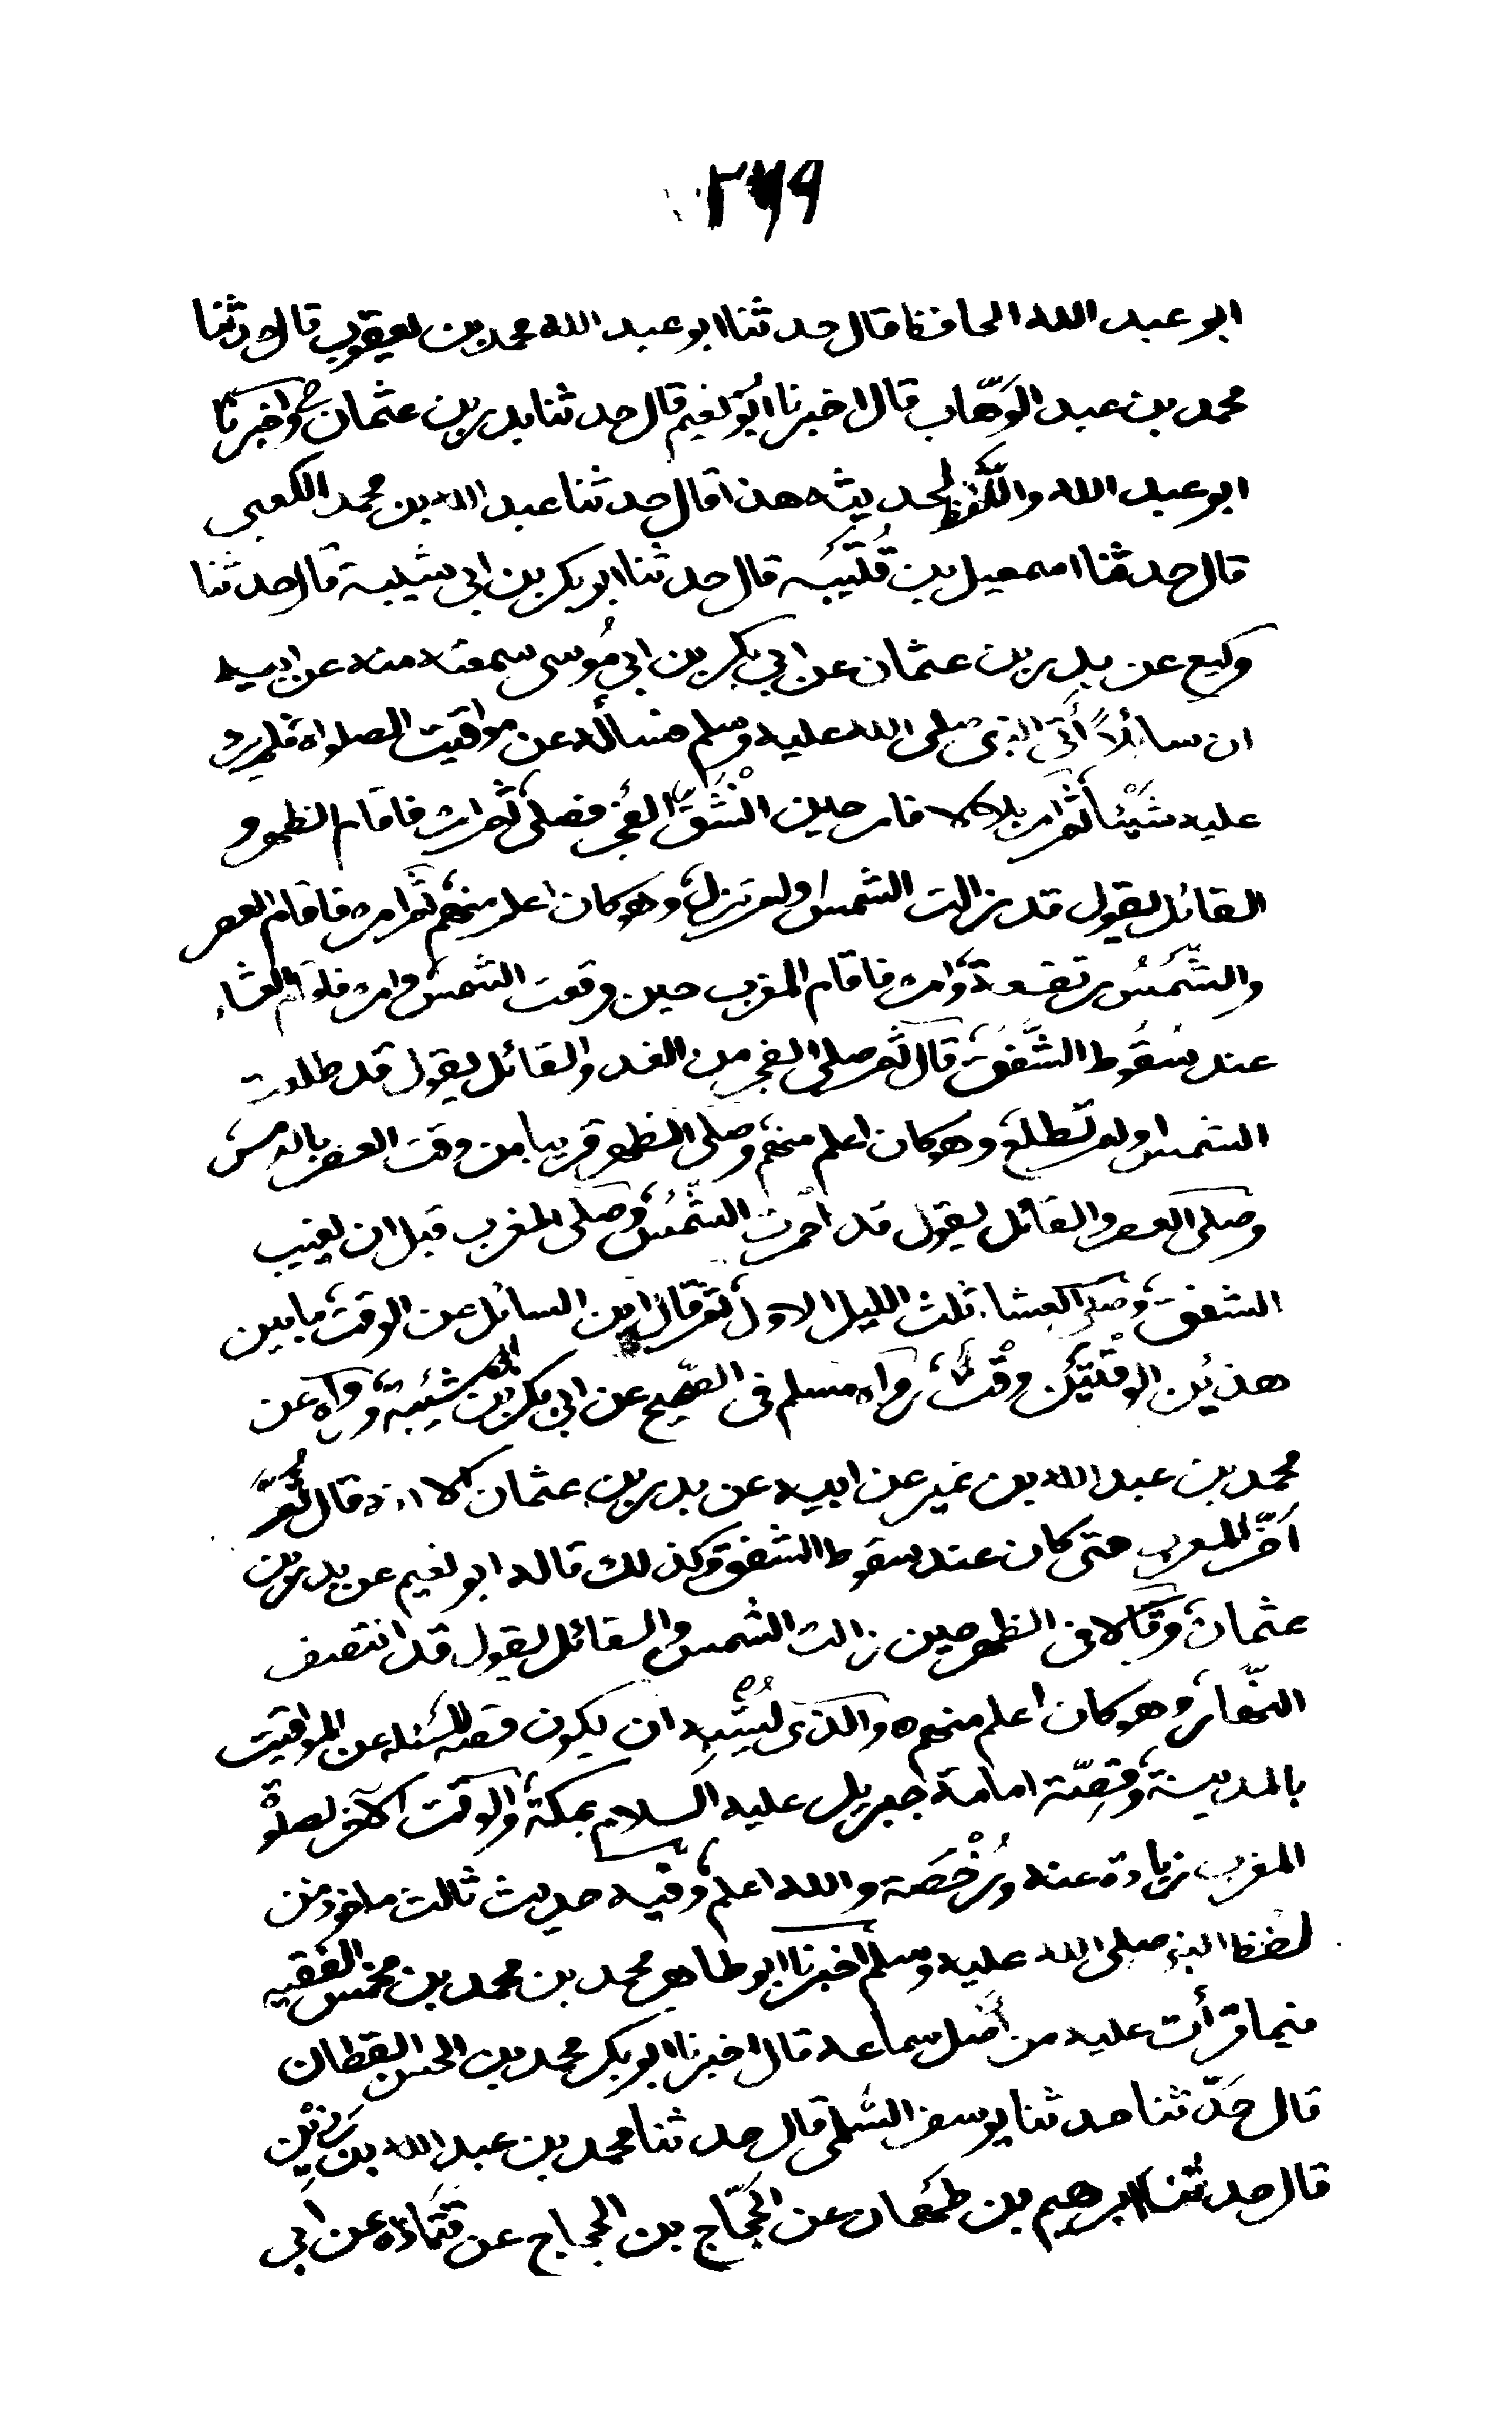 ٢٦٩
ابو عبد الله الحافظ قال حدثنا ابو عبد الله محمد بن يعقوب قال حدثنا
محمد بن عبد الوَهّاب قال اخبرنا ابُو نعيم قال حدثنا بدر بن عثمان ح واخبرنا
ابو عبد الله واللّفظ لحديثه هذا قال حدثنا عبد الله بن محمد الكعبى
قال حدثنا اسمعيل بن قُتَيْبَه قال حدثنا ابو بكر بن ابى شيبة قال حدثنا
وكيع عن بدر بن عثمان عن ابى بكر بن ابى مُوسى سمعته منه عن ابيه
ان سائلاً أتى النبى صلى الله عليه وسلم فسأله عن مواقيت الصلواة فلم يرد
عليه شَيْئاً ثم امر بلالا فاقام حين انْشَقَّ الفجر فصلى ثم امره فاقام الظهر و
القائل يقول قد زالت الشمس اولم تزل، وهو كان اعلم منهم ثم امره فاقام العصر
والشّمْسُ مرتفعة، وامره فاقام المغرب حين وقعت الشمس وامره فاقام العشاء
عند سُقُوط الشَّفَقِ، قال ثم صلى الفجر من الغد والقائل يقول قد طلعت
الشمس اولم تطلع، وهو كان اعلم منهم، وصلى الظهر قريبا من وقت العصر بالامس،
وصلى العصر والقائل يقول قد احمرت الشّمْسُ، وصلى المغرب قبل ان يغيب
الشفق، وصلى العشاء ثلث الليل الاول، ثم قال اين السائل عن الوقت، ما بين
هذيْن الوقْتَيْن وقْت، رواه مسلم فى الصّحيح عن ابى بكر بن ابى شَيْبَة، ورواه عن
محمد بن عبد الله بن نمير عن ابيه عن بدر بن عثمان الا انه قال ثُمَّ
اَخّر المغرب حتى كان عند سقوط الشفق وكذلك قاله ابو نعيم عن بدر بن
عثمان، وقالا فى الظهر حين زالت الشمس والقائل يقول قد انتصف
النهّار، وهو كان اعلم منهم ه والذى يُشْبِه ان يكون قصة المسئلة عن المواقيت
بالمدينة، وقِصّة امامة جبريل عليه السلام بمكة، والوقت الآخر لصلوة
المغرب زيادة عنه ورُخْصَة والله اعلم، وفيه حديث ثالث ماخوذ من
لفظ النبى صلى الله عليه وسلم اخبرنا ابو طاهر محمد بن محمد بن محمش الفقيه
فيما قرأت عليه من أصل سماعه قال اخبرنا ابو بكر محمد بن الحسن القطان
قال حَدّثنا حدثنا يوسف السّلمى قال حدثنا محمد بن عبد الله بن رَزِيْن
قال حدثنا ابرهيم بن طهْمان عن الحَجّاج بن الحجاج عن قتَادَة عن ابى